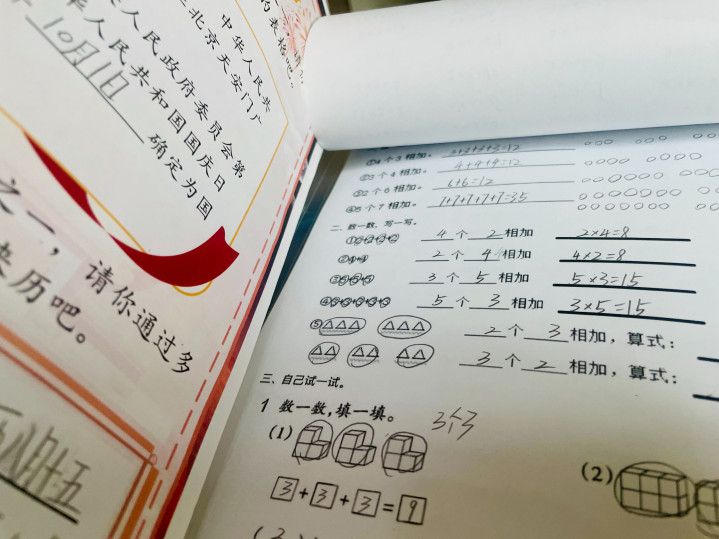 中华人民共
北京天安门广
人民政府委员会第
华人民共和国国庆日
10月1日 确定为国
之一，请你通过多
央历吧。
八月十五
①4个3相加。 3+3+3+3=12
②3个4相加。 4+4+4=12
③2个6相加。 6+6=12
④5个7相加。 7+7+7+7+7=35
二、数一数，写一写。
①2+2+2+2 4个2相加 2×4=8
②4+4 2个4相加 4×2=8
③5+5+5 3个5相加 5×3=15
④3+3+3+3+3 5个3相加 3×5=15
⑤ 2个3相加，算式：
3个2相加，算式：
三、自己试一试。
1 数一数，填一填。 3个3
(1)
(2)
3+3+3=9